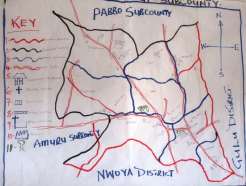 SUBCOUNTY.
PABBO SUBCOUNTY
KEY
N
W
E
S
GULU DISTRICT
AMURU SUBCOUNTY
NWOYA DISTRICT